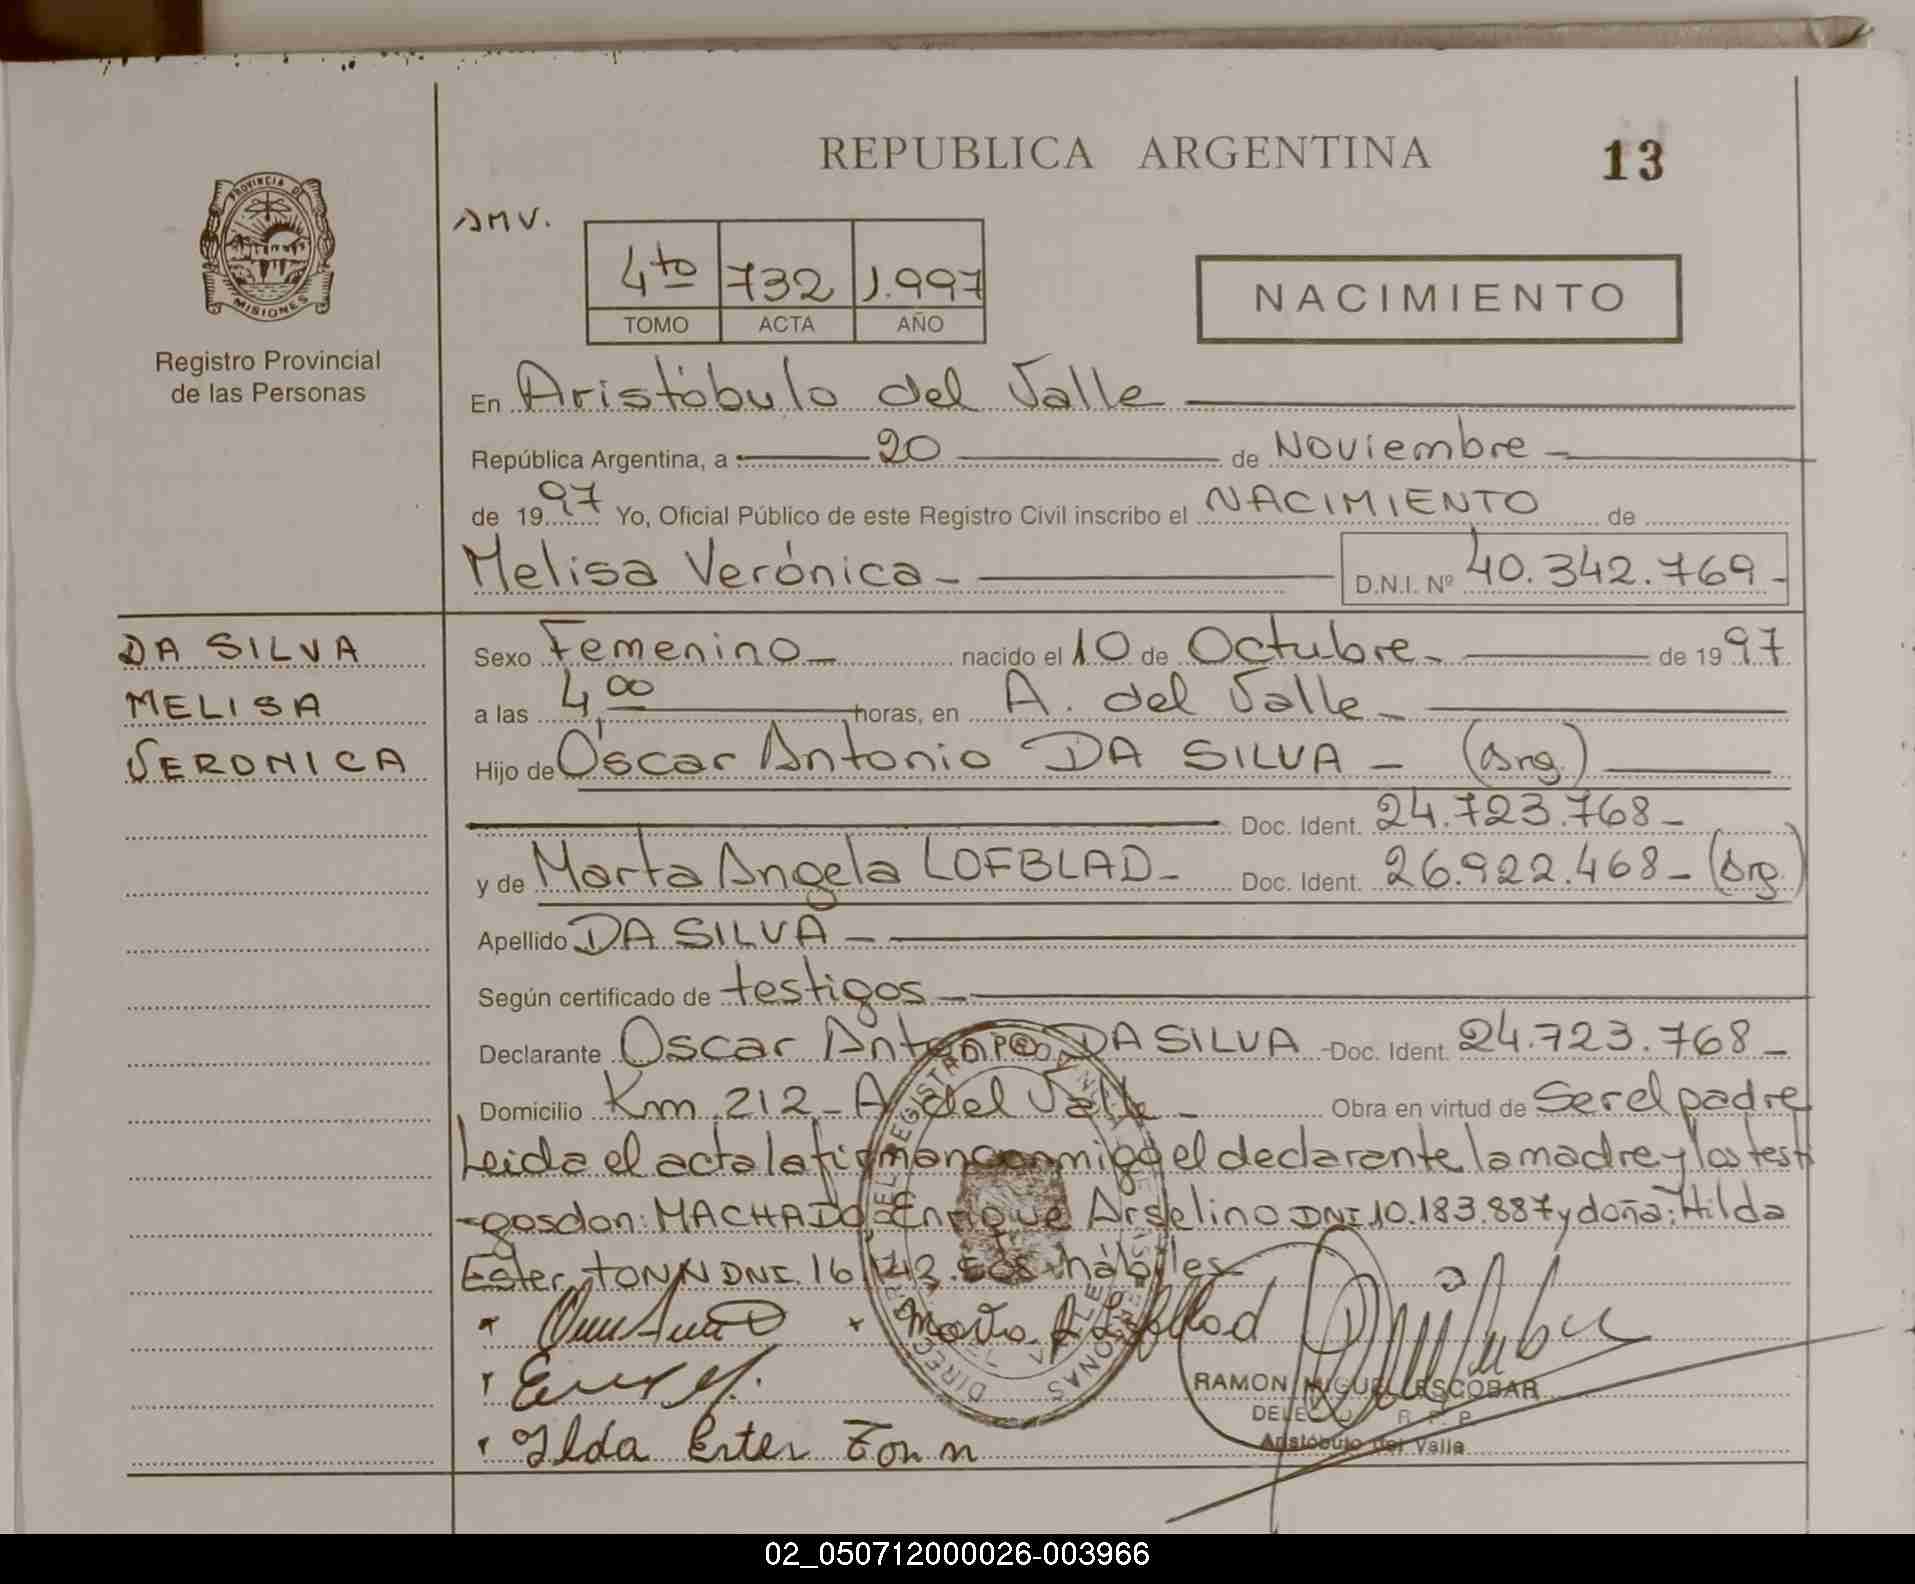 REPUBLICA ARGENTINA
13
PROVINCIA DE
MISIONES
Registro Provincial
de las Personas
AMV.
4to 732 1.997
TOMO ACTA AÑO
NACIMIENTO
En Aristóbulo del Valle
República Argentina, a 20 de Noviembre
de 1997 Yo, Oficial Público de este Registro Civil inscribo el NACIMIENTO de
Melisa Verónica D.N.I. Nº 40.342.769
DA SILVA
MELISA
VERONICA
Sexo Femenino nacido el 10 de Octubre de 1997
a las 4 00 horas, en A. del Valle
Hijo de Oscar Antonio DA SILVA (Arg.)
Doc. Ident. 24.723.768
y de Marta Angela LOFBLAD Doc. Ident. 26.922.468 (Arg.)
Apellido DA SILVA
Según certificado de testigos
Declarante Oscar Antonio DA SILVA Doc. Ident. 24.723.768
Domicilio Km 212 - A. del Valle Obra en virtud de Ser el padre
Leida el acta la firman conmigo el declarante la madre y los testi
-gos don: MACHADO, Enrique Arselino DNI 10.183.887 y doña: Hilda
Ester TONN DNI. 16 hábiles
Marta A Lofblad
RAMON MIGUEL ESCOBAR
R. P. P.
Aristóbulo del Valle
Ilda Ester Tonn
02_050712000026-003966